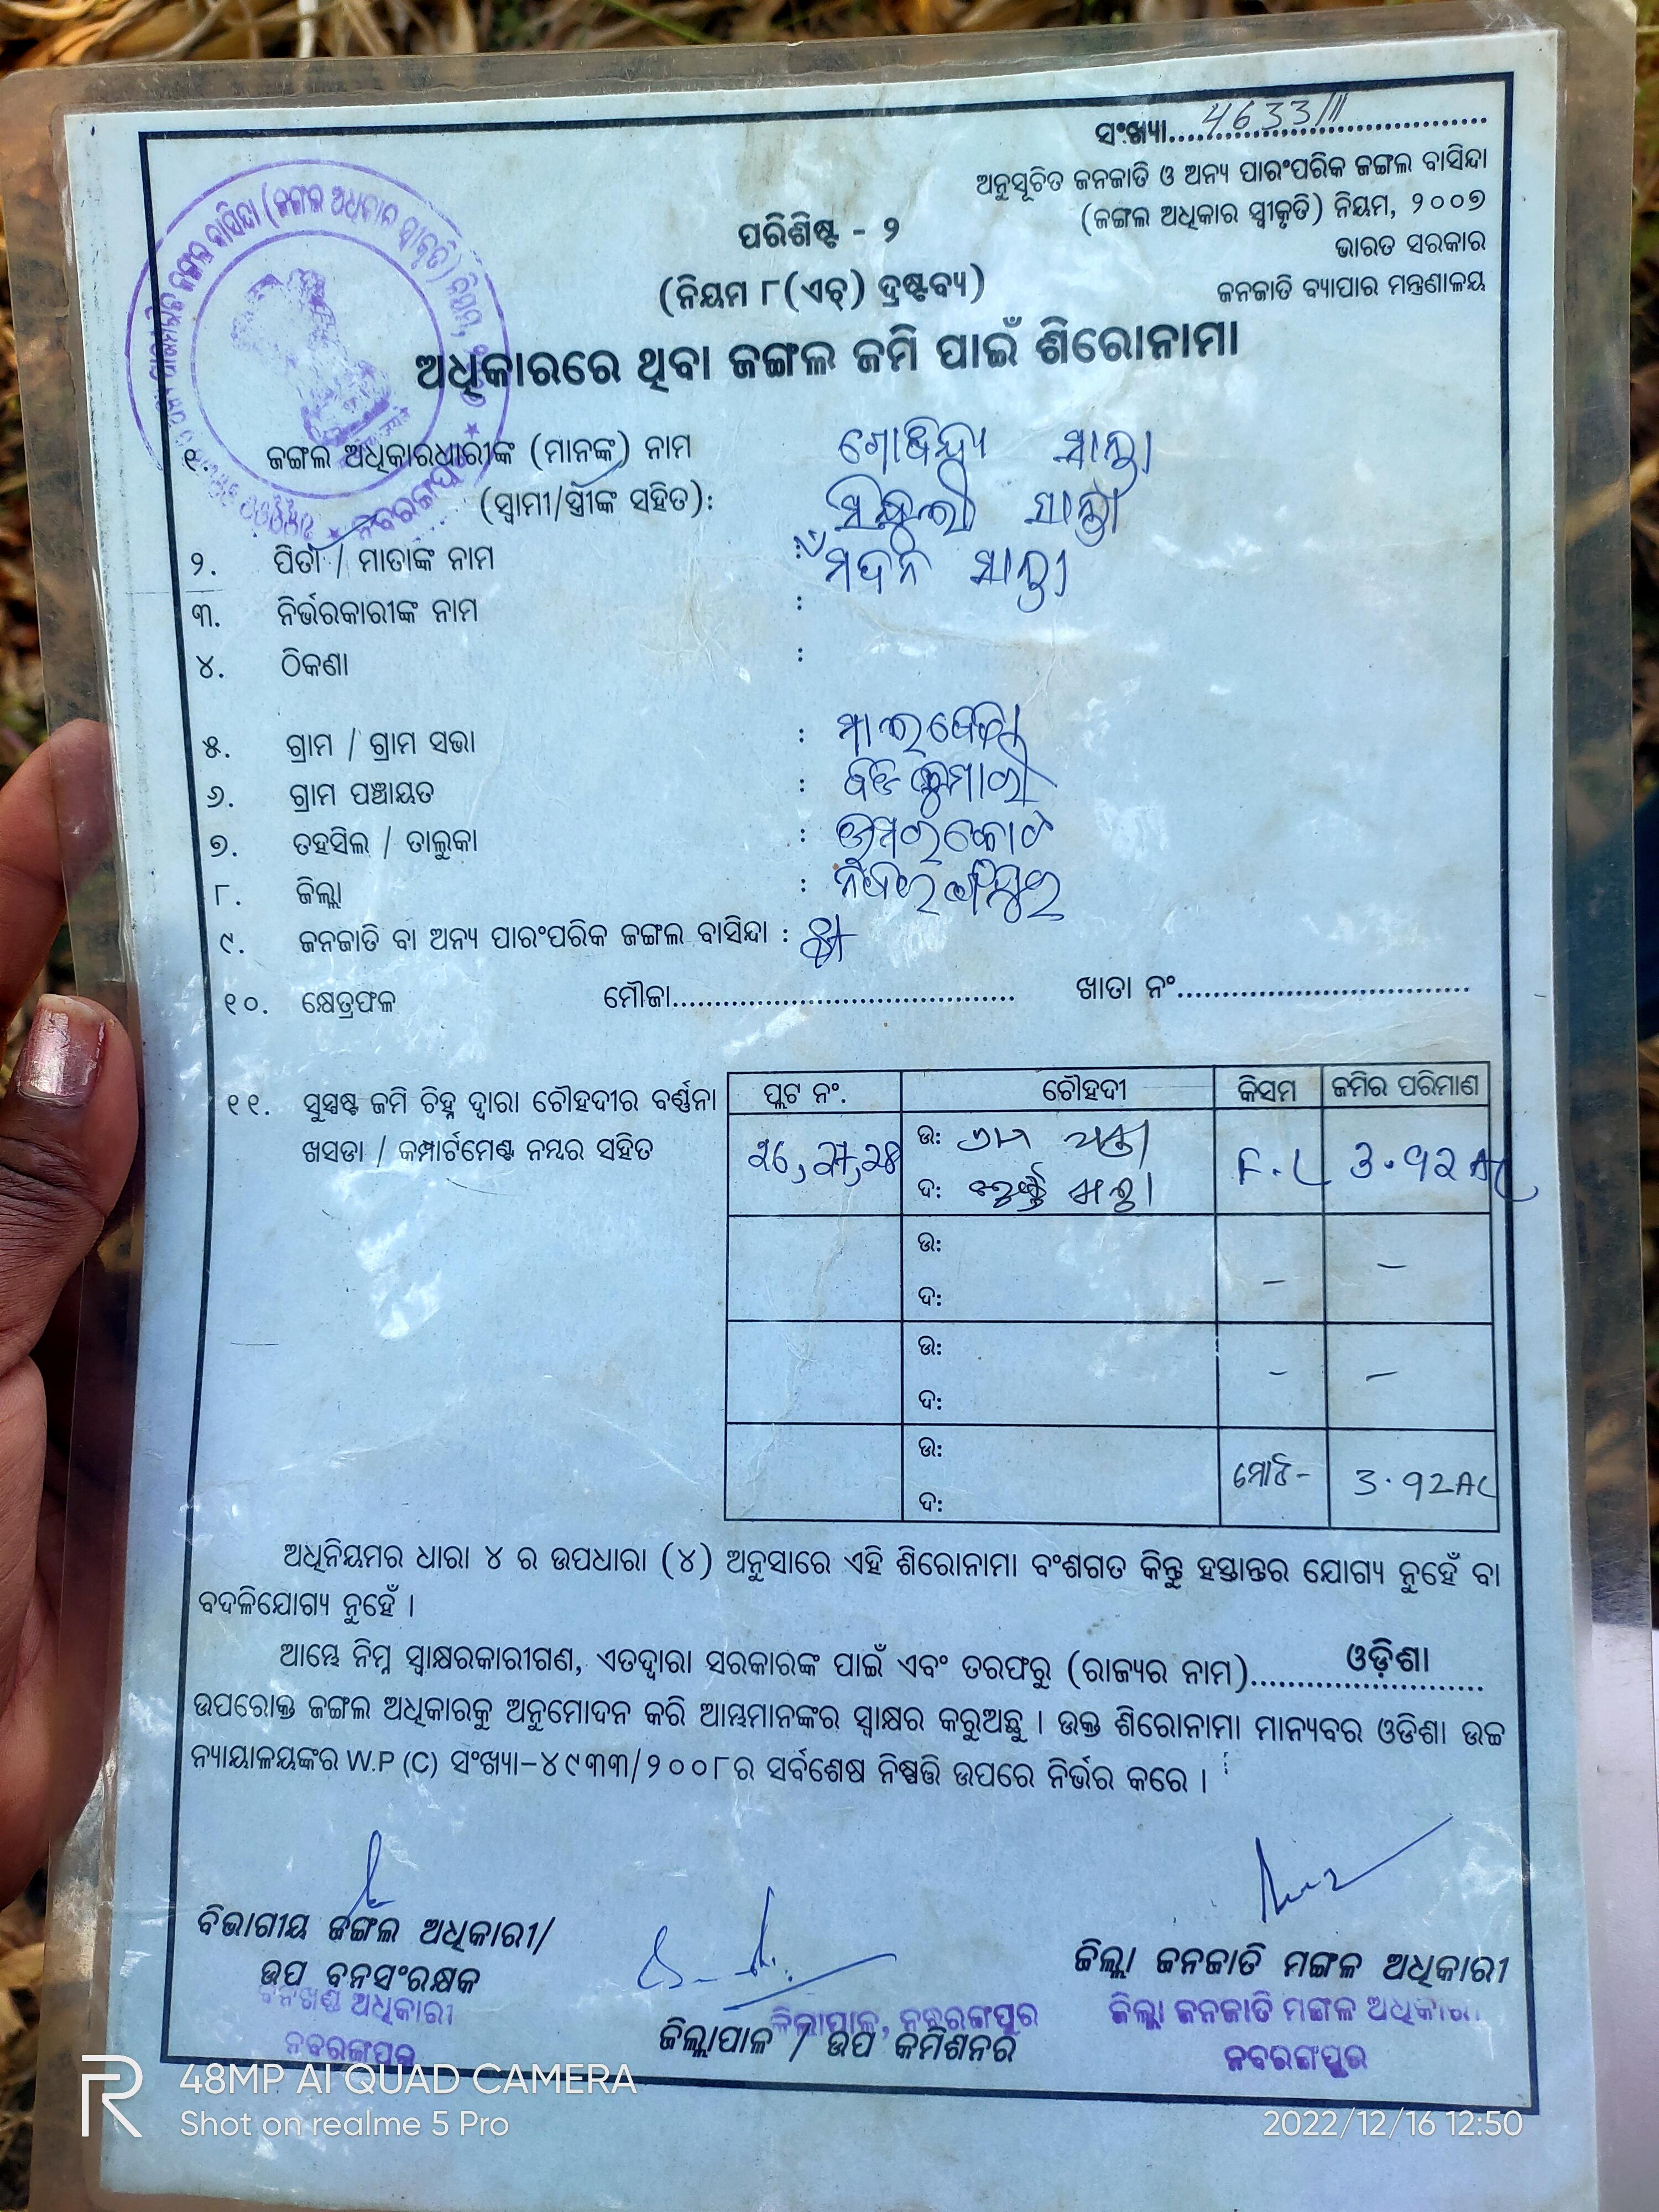 ସଂଖ୍ୟା..... 4633/III
ଅନୁସୂଚିତ ଜନଜାତି ଓ ଅନ୍ୟ ପାରଂପରିକ ଜଙ୍ଗଲ ବାସିନ୍ଦା
(ଜଙ୍ଗଲ ଅଧିକାର ସ୍ୱୀକୃତି) ନିୟମ, ୨୦୦୭
ଭାରତ ସରକାର
ଜନଜାତି ବ୍ୟାପାର ମନ୍ତ୍ରଣାଳୟ
ପରିଶିଷ୍ଟ - ୨
(ନିୟମ ୮(ଏଚ୍) ଦ୍ରଷ୍ଟବ୍ୟ)
ଅଧିକାରରେ ଥିବା ଜଙ୍ଗଲ ଜମି ପାଇଁ ଶିରୋନାମା
୧. ଜଙ୍ଗଲ ଅଧିକାରଧାରୀଙ୍କ (ମାନଙ୍କ) ନାମ
(ସ୍ୱାମୀ/ସ୍ତ୍ରୀଙ୍କ ସହିତ):
୨. ପିତା / ମାତାଙ୍କ ନାମ : ମଦନ
୩. ନିର୍ଭରକାରୀଙ୍କ ନାମ :
୪. ଠିକଣା :
୫. ଗ୍ରାମ / ଗ୍ରାମ ସଭା :
୬. ଗ୍ରାମ ପଞ୍ଚାୟତ :
୭. ତହସିଲ / ତାଲୁକା : ଉମରକୋଟ
୮. ଜିଲ୍ଲା : ନବରଙ୍ଗପୁର
୯. ଜନଜାତି ବା ଅନ୍ୟ ପାରଂପରିକ ଜଙ୍ଗଲ ବାସିନ୍ଦା :
୧୦. କ୍ଷେତ୍ରଫଳ ମୌଜା..... ଖାତା ନଂ.....
୧୧. ସୁସ୍ପଷ୍ଟ ଜମି ଚିହ୍ନ ଦ୍ୱାରା ଚୌହଦୀର ବର୍ଣ୍ଣନା
ଖସଡା / କମ୍ପାର୍ଟମେଣ୍ଟ ନମ୍ବର ସହିତ
ପ୍ଲଟ ନଂ. ଚୌହଦୀ କିସମ ଜମିର ପରିମାଣ
ଉ: F.L ୩.୭୨ AC
ଦ:
ଉ: – –
ଦ:
ଉ: – –
ଦ:
ଉ: ମୋଟ- 3.92AC
ଦ:
ଅଧିନିୟମର ଧାରା ୪ ର ଉପଧାରା (୪) ଅନୁସାରେ ଏହି ଶିରୋନାମା ବଂଶଗତ କିନ୍ତୁ ହସ୍ତାନ୍ତର ଯୋଗ୍ୟ ନୁହେଁ ବା
ବଦଳିଯୋଗ୍ୟ ନୁହେଁ ।
ଆମ୍ଭେ ନିମ୍ନ ସ୍ୱାକ୍ଷରକାରୀଗଣ, ଏତଦ୍ୱାରା ସରକାରଙ୍କ ପାଇଁ ଏବଂ ତରଫରୁ (ରାଜ୍ୟର ନାମ)..... ଓଡ଼ିଶା
ଉପରୋକ୍ତ ଜଙ୍ଗଲ ଅଧିକାରକୁ ଅନୁମୋଦନ କରି ଆମ୍ଭମାନଙ୍କର ସ୍ୱାକ୍ଷର କରୁଅଛୁ । ଉକ୍ତ ଶିରୋନାମା ମାନ୍ୟବର ଓଡିଶା ଉଚ୍ଚ
ନ୍ୟାୟାଳୟଙ୍କର W.P (C) ସଂଖ୍ୟା-୪୯୩୩/୨୦୦୮ର ସର୍ବଶେଷ ନିଷ୍ପତ୍ତି ଉପରେ ନିର୍ଭର କରେ ।
ବିଭାଗୀୟ ଜଙ୍ଗଲ ଅଧିକାରୀ/
ଉପ ବନସଂରକ୍ଷକ
ବନଖଣ୍ଡ ଅଧିକାରୀ
ନବରଙ୍ଗପୁର
ଜିଲ୍ଲାପାଳ, ନବରଙ୍ଗପୁର
ଜିଲ୍ଲାପାଳ / ଉପ କମିଶନର
ଜିଲ୍ଲା ଜନଜାତି ମଙ୍ଗଳ ଅଧିକାରୀ
ଜିଲ୍ଲା ଜନଜାତି ମଙ୍ଗଳ ଅଧିକାରୀ
ନବରଙ୍ଗପୁର
48MP AI QUAD CAMERA
Shot on realme 5 Pro
2022/12/16 12:50